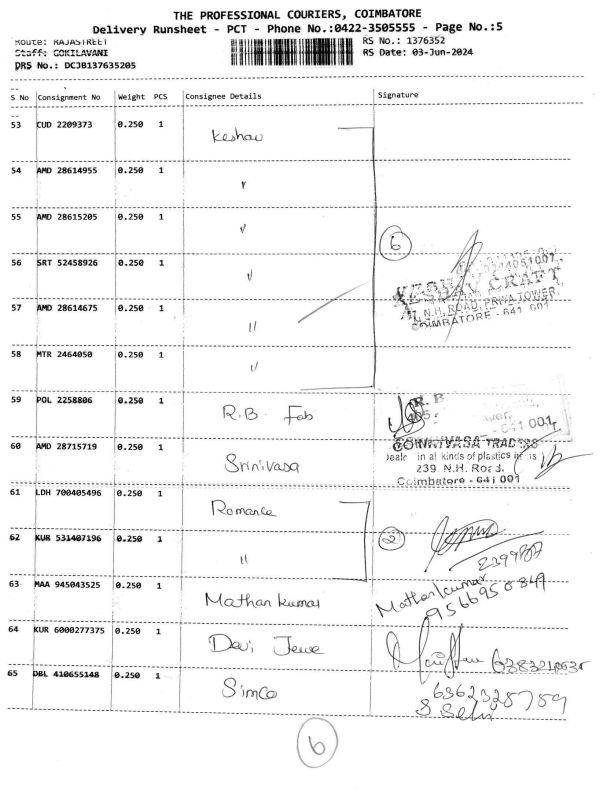 THE PROFESSIONAL COURIERS, COIMBATORE
Delivery Runsheet - PCT - Phone No.:0422-3505555 - Page No.:5
Route: RAJASTREET RS No.: 1376352
Staff: GOKILAVANI RS Date: 03-Jun-2024
DRS No.: DCJB137635205
S No Consignment No Weight PCS Consignee Details Signature
53 CUD 2209373 0.250 1 Keshav
54 AMD 28614955 0.250 1 "
55 AMD 28615205 0.250 1 "
6
56 SRT 52458926 0.250 1 "
KESHAV CRAFT
57 AMD 28614675 0.250 1 "
N.H. ROAD, PRIYA TOWER,
COIMBATORE - 641 001
58 MTR 2464050 0.250 1 "
59 POL 2258806 0.250 1 R.B. Fab
R. B
641 001
60 AMD 28715719 0.250 1 Srinivasa
TRADERS
in all kinds of plastics
239, N.H. Road,
Coimbatore - 641 001
61 LDH 700405496 0.250 1 Romance
62 KUR 531407196 0.250 1 "
2
63 MAA 945043525 0.250 1 Mathan Kumar
Mathankumar
9566950849
64 KUR 6000277375 0.250 1 Devi Jewe
65 DBL 410655148 0.250 1 Simco
6362328759
6